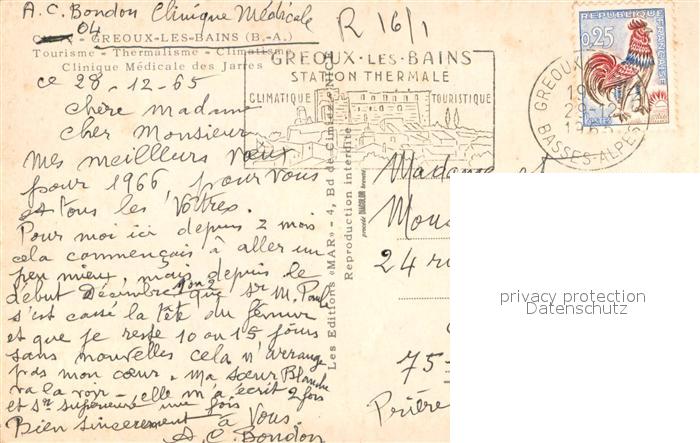 A. C. Bondon Clinique Médicale
R 16/1
04
GREOUX-LES-BAINS (B.-A.)
Tourisme - Thermalisme - Climatisme
Clinique Médicale des Jarres
ce 28-12-65
Chère Madame
Cher Monsieur
Mes meilleurs vœux
pour 1966, pour vous
et tous les Vôtres.
Pour moi ici depuis 2 mois
cela commençais à aller un
peu mieux, mais depuis le
début Décembre que Sr M. Paule
s'est cassé la tête du fémur
et que je reste 10 ou 15 jours
sans nouvelles cela n'arrange
pas mon cœur. Ma sœur Blanche
va la voir - elle m'a écrit 2 fois
et Sr supérieure une fois
Bien sincèrement à Vous.
A. C. Bondon
Les Editions «MAR» - 4, Bd de Cimiez - NICE
Reproduction interdite
GREOUX-LES-BAINS
STATION THERMALE
CLIMATIQUE
TOURISTIQUE
GREOUX
BASSES-ALPES
REPUBLIQUE FRANÇAISE
0,25
Madame et
24 ru
75-
Prière
privacy protection
Datenschutz